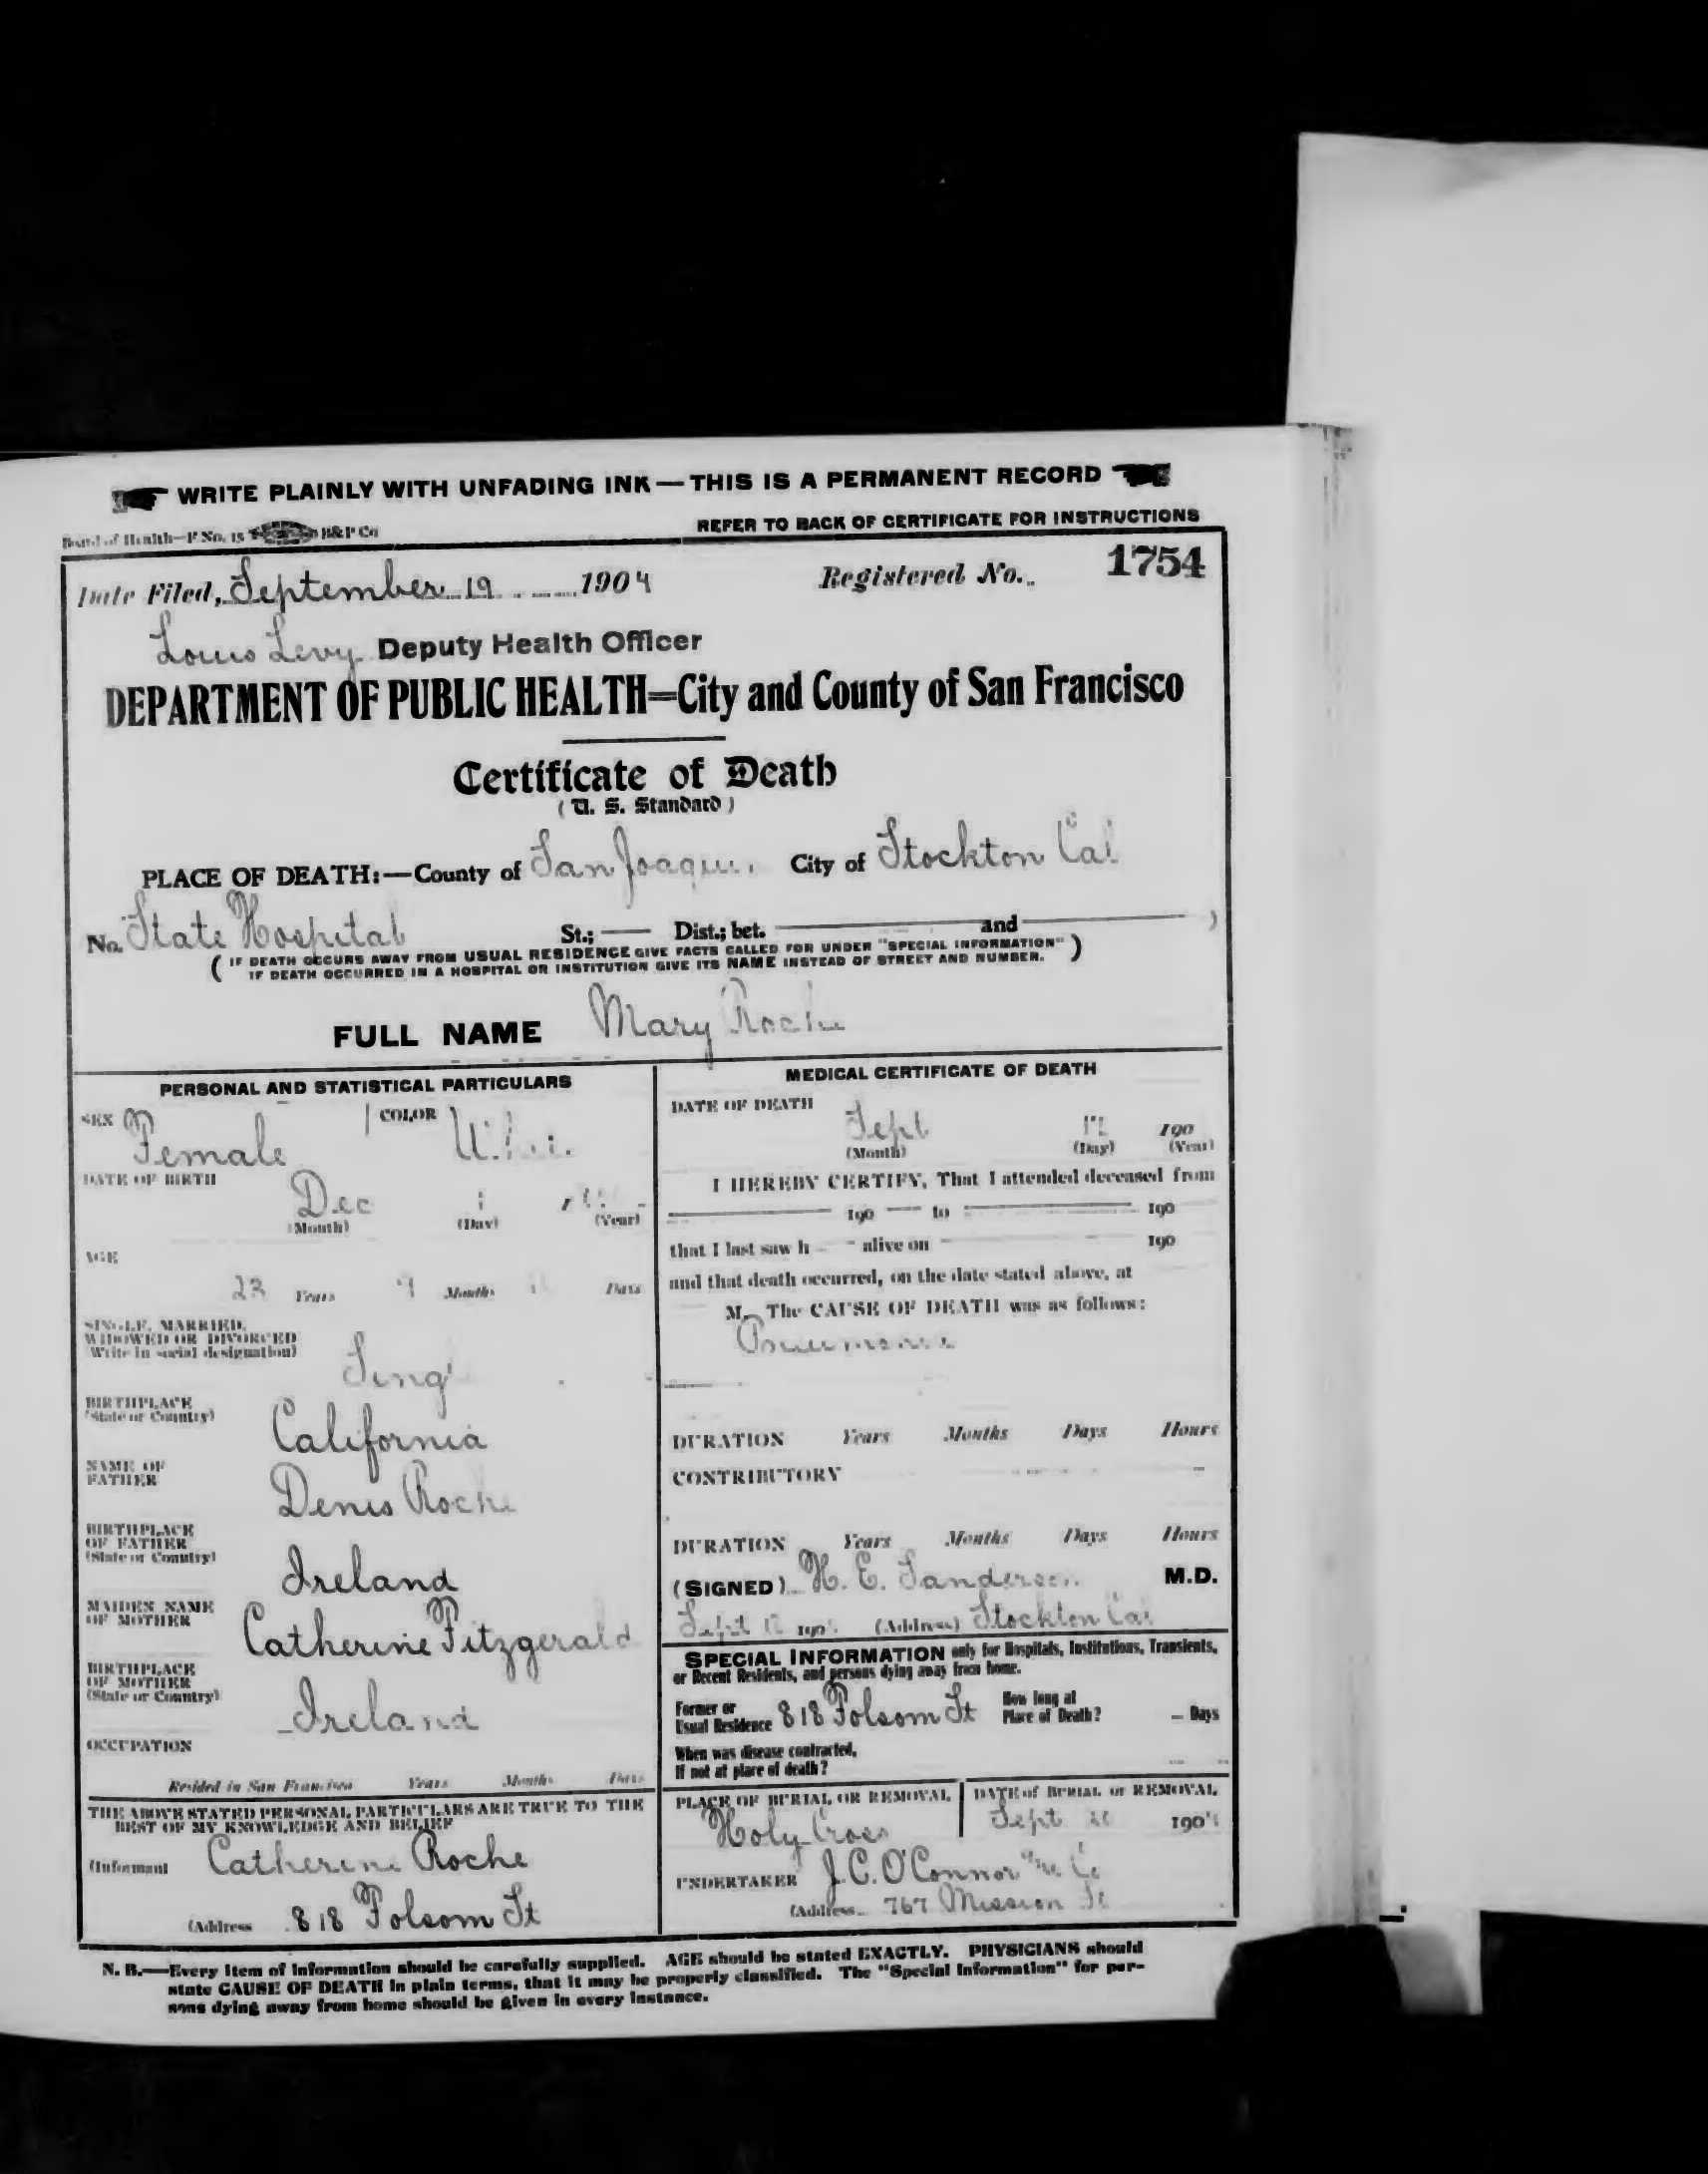 WRITE PLAINLY WITH UNFADING INK — THIS IS A PERMANENT RECORD
Board of Health—F No. 15 H&P Co
REFER TO BACK OF CERTIFICATE FOR INSTRUCTIONS
Date Filed, September 19 1904 Registered No. 1754
Louis Levy Deputy Health Officer
DEPARTMENT OF PUBLIC HEALTH=City and County of San Francisco
Certificate of Death
(U. S. Standard)
PLACE OF DEATH:—County of San Joaquin City of Stockton Cal
No. State Hospital St.; — Dist.; bet. — and — )
( IF DEATH OCCURS AWAY FROM USUAL RESIDENCE GIVE FACTS CALLED FOR UNDER "SPECIAL INFORMATION" )
IF DEATH OCCURRED IN A HOSPITAL OR INSTITUTION GIVE ITS NAME INSTEAD OF STREET AND NUMBER.
FULL NAME Mary Roche
PERSONAL AND STATISTICAL PARTICULARS
SEX Female COLOR
DATE OF BIRTH
Dec
(Month) (Day) (Year)
AGE
23 Years 9 Months Days
SINGLE, MARRIED,
WIDOWED OR DIVORCED
(Write in social designation)
Sing
BIRTHPLACE
(State or Country)
California
NAME OF
FATHER
Denis Roche
BIRTHPLACE
OF FATHER
(State or Country)
Ireland
MAIDEN NAME
OF MOTHER
Catherine Fitzgerald
BIRTHPLACE
OF MOTHER
(State or Country)
Ireland
OCCUPATION
Resided in San Francisco Years Months Days
THE ABOVE STATED PERSONAL PARTICULARS ARE TRUE TO THE
BEST OF MY KNOWLEDGE AND BELIEF
(Informant Catherine Roche
(Address 818 Folsom St
MEDICAL CERTIFICATE OF DEATH
DATE OF DEATH
Sept 190
(Month) (Day) (Year)
I HEREBY CERTIFY, That I attended deceased from
— 190 — to — 190
that I last saw h — alive on — 190
and that death occurred, on the date stated above, at
M. The CAUSE OF DEATH was as follows:
Pneumonia
DURATION Years Months Days Hours
CONTRIBUTORY
DURATION Years Months Days Hours
(SIGNED) H. E. Sanderson M.D.
Sept 190 (Address) Stockton Cal
SPECIAL INFORMATION only for Hospitals, Institutions, Transients,
or Recent Residents, and persons dying away from home.
Former or
Usual Residence 818 Folsom St
How long at
Place of Death? — Days
When was disease contracted,
If not at place of death?
PLACE OF BURIAL OR REMOVAL
Holy Cross
DATE of BURIAL or REMOVAL
Sept 190
UNDERTAKER J. C. O'Connor
(Address 767 Mission St
N. B.—Every item of information should be carefully supplied. AGE should be stated EXACTLY. PHYSICIANS should
state CAUSE OF DEATH in plain terms, that it may be properly classified. The "Special Information" for per-
sons dying away from home should be given in every instance.